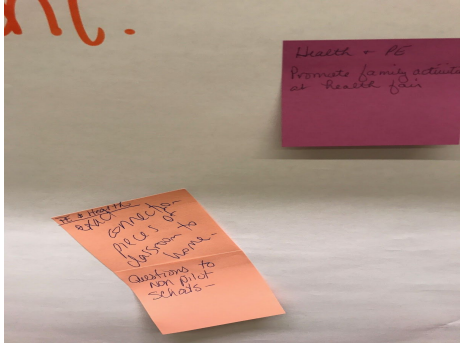 nt.
Health + PE
Promote family activities
at health fair
PE & Health
exact
connection
pieces of
classroom to
home-
Questions to
non pilot
schools-